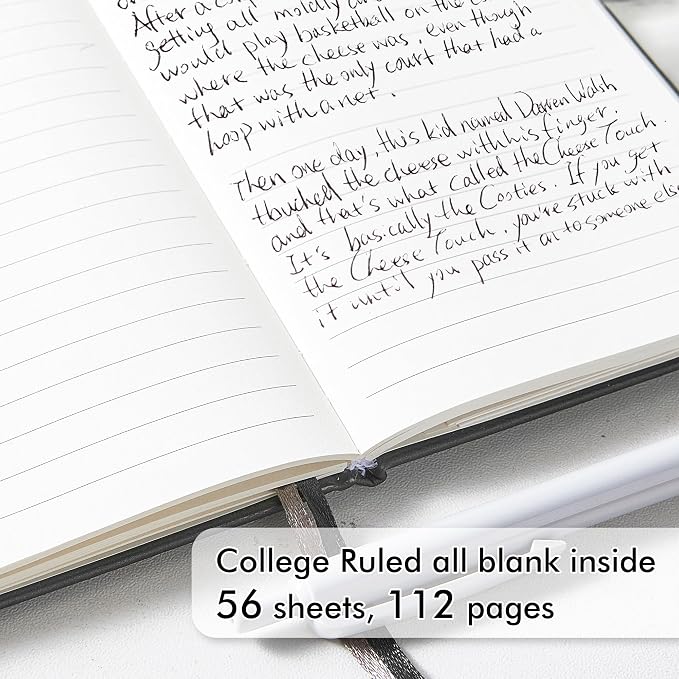 After a
getting all moldy
would play basketball on the
where the cheese was, even though
that was the only court that had a
hoop with a net.
Then one day, this kid named Darren Walsh
touched the cheese with his finger.
and that's what called the Cheese Touch.
It's basically the Cooties. If you get
the Cheese Touch, you're stuck with
it until you pass it on to someone else
College Ruled all blank inside
56 sheets, 112 pages